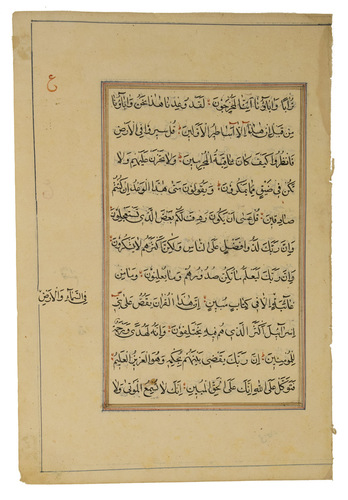 ع
تُرَابًا وَاٰبَاؤُنَا اَئِنَّا لَمُخْرَجُونَ لَقَدْ وُعِدْنَا هٰذَا نَحْنُ وَاٰبَاؤُنَا
مِنْ قَبْلُ اِنْ هٰذَا اِلَّا اَسَاطِيرُ الْاَوَّلِينَ قُلْ سِيرُوا فِى الْاَرْضِ
فَانْظُرُوا كَيْفَ كَانَ عَاقِبَةُ الْمُجْرِمِينَ وَلَا تَحْزَنْ عَلَيْهِمْ وَلَا
تَكُنْ فِى ضَيْقٍ مِمَّا يَمْكُرُونَ وَيَقُولُونَ مَتٰى هٰذَا الْوَعْدُ اِنْ كُنْتُمْ
صَادِقِينَ قُلْ عَسٰى اَنْ يَكُونَ رَدِفَ لَكُمْ بَعْضُ الَّذِى تَسْتَعْجِلُونَ
وَاِنَّ رَبَّكَ لَذُو فَضْلٍ عَلَى النَّاسِ وَلٰكِنَّ اَكْثَرَهُمْ لَا يَشْكُرُونَ
وَاِنَّ رَبَّكَ لَيَعْلَمُ مَا تُكِنُّ صُدُورُهُمْ وَمَا يُعْلِنُونَ وَمَا مِنْ
غَائِبَةٍ اِلَّا فِى كِتَابٍ مُبِينٍ اِنَّ هٰذَا الْقُرْاٰنَ يَقُصُّ عَلٰى بَنِى
فِى السَّمَاءِ وَالْاَرْضِ
اِسْرَائِيلَ اَكْثَرَ الَّذِى هُمْ فِيهِ يَخْتَلِفُونَ وَاِنَّهُ لَهُدًى وَرَحْمَةٌ
لِلْمُؤْمِنِينَ اِنَّ رَبَّكَ يَقْضِى بَيْنَهُمْ بِحُكْمِهِ وَهُوَ الْعَزِيزُ الْعَلِيمُ
فَتَوَكَّلْ عَلَى اللّٰهِ اِنَّكَ عَلَى الْحَقِّ الْمُبِينِ اِنَّكَ لَا تُسْمِعُ الْمَوْتٰى وَلَا